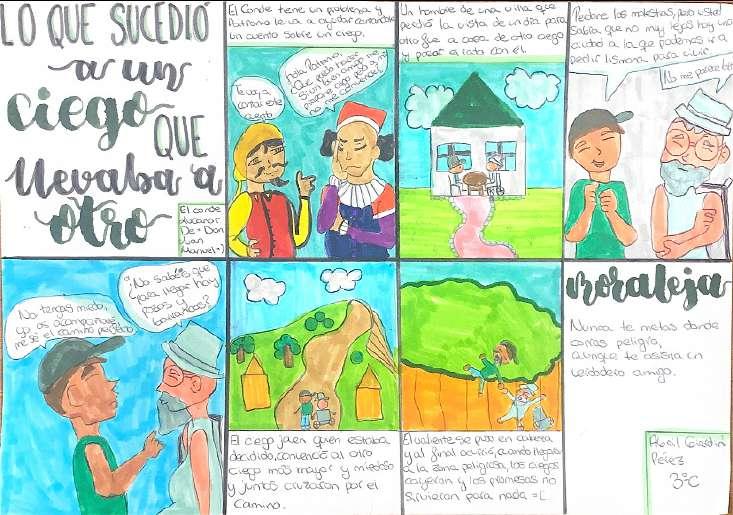 LO QUE SUCEDIÓ
a un
ciego
QUE
llevaba a
otro
El conde
Lucanor
De «Don
Juan
Manuel»
El Conde tiene un problema y
Patronio le va a ayudar contandole
un cuento sobre un ciego.
Te voy a
contar este
cuento
Hola Patronio,
¿Que puedo hacer
si un buen amigo me
pero a mi
no me convence?
Un hombre de una villa que
perdió la vista de un día para
otro fue a casa de otro ciego
y pasar el rato con él.
Perdone las molestias, pero usted
sabría que no muy lejos hay una
ciudad a la que podemos ir a
pedir lismona para vivir.
No me parece bien
No tengas miedo,
yo os acompañaré
me sé el camino perfecto.
¿No sabéis que
para llegar hay
pozos y
barrancos?
El ciego joven quien estaba
decidido, convenció al otro
ciego más mayor y miedoso
y juntos cruzaron por el
camino.
El valiente se puso en cabeza
y al final ocurrió, cuando llegaron
a la zona peligrosa, los ciegos
cayeron y las promesas no
sirvieron para nada =(.
Moraleja
Nunca te metas donde
corras peligro,
aunque te asista un
verdadero amigo.
Abril Girardin
Pérez
3ºC